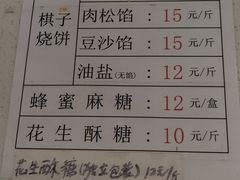 棋子烧饼
肉松馅：15元/斤
豆沙馅：15元/斤
油盐(无馅)：12元/斤
蜂蜜麻糖：12元/盒
花生酥糖：10元/斤
花生酥糖(独立包装)12元/斤